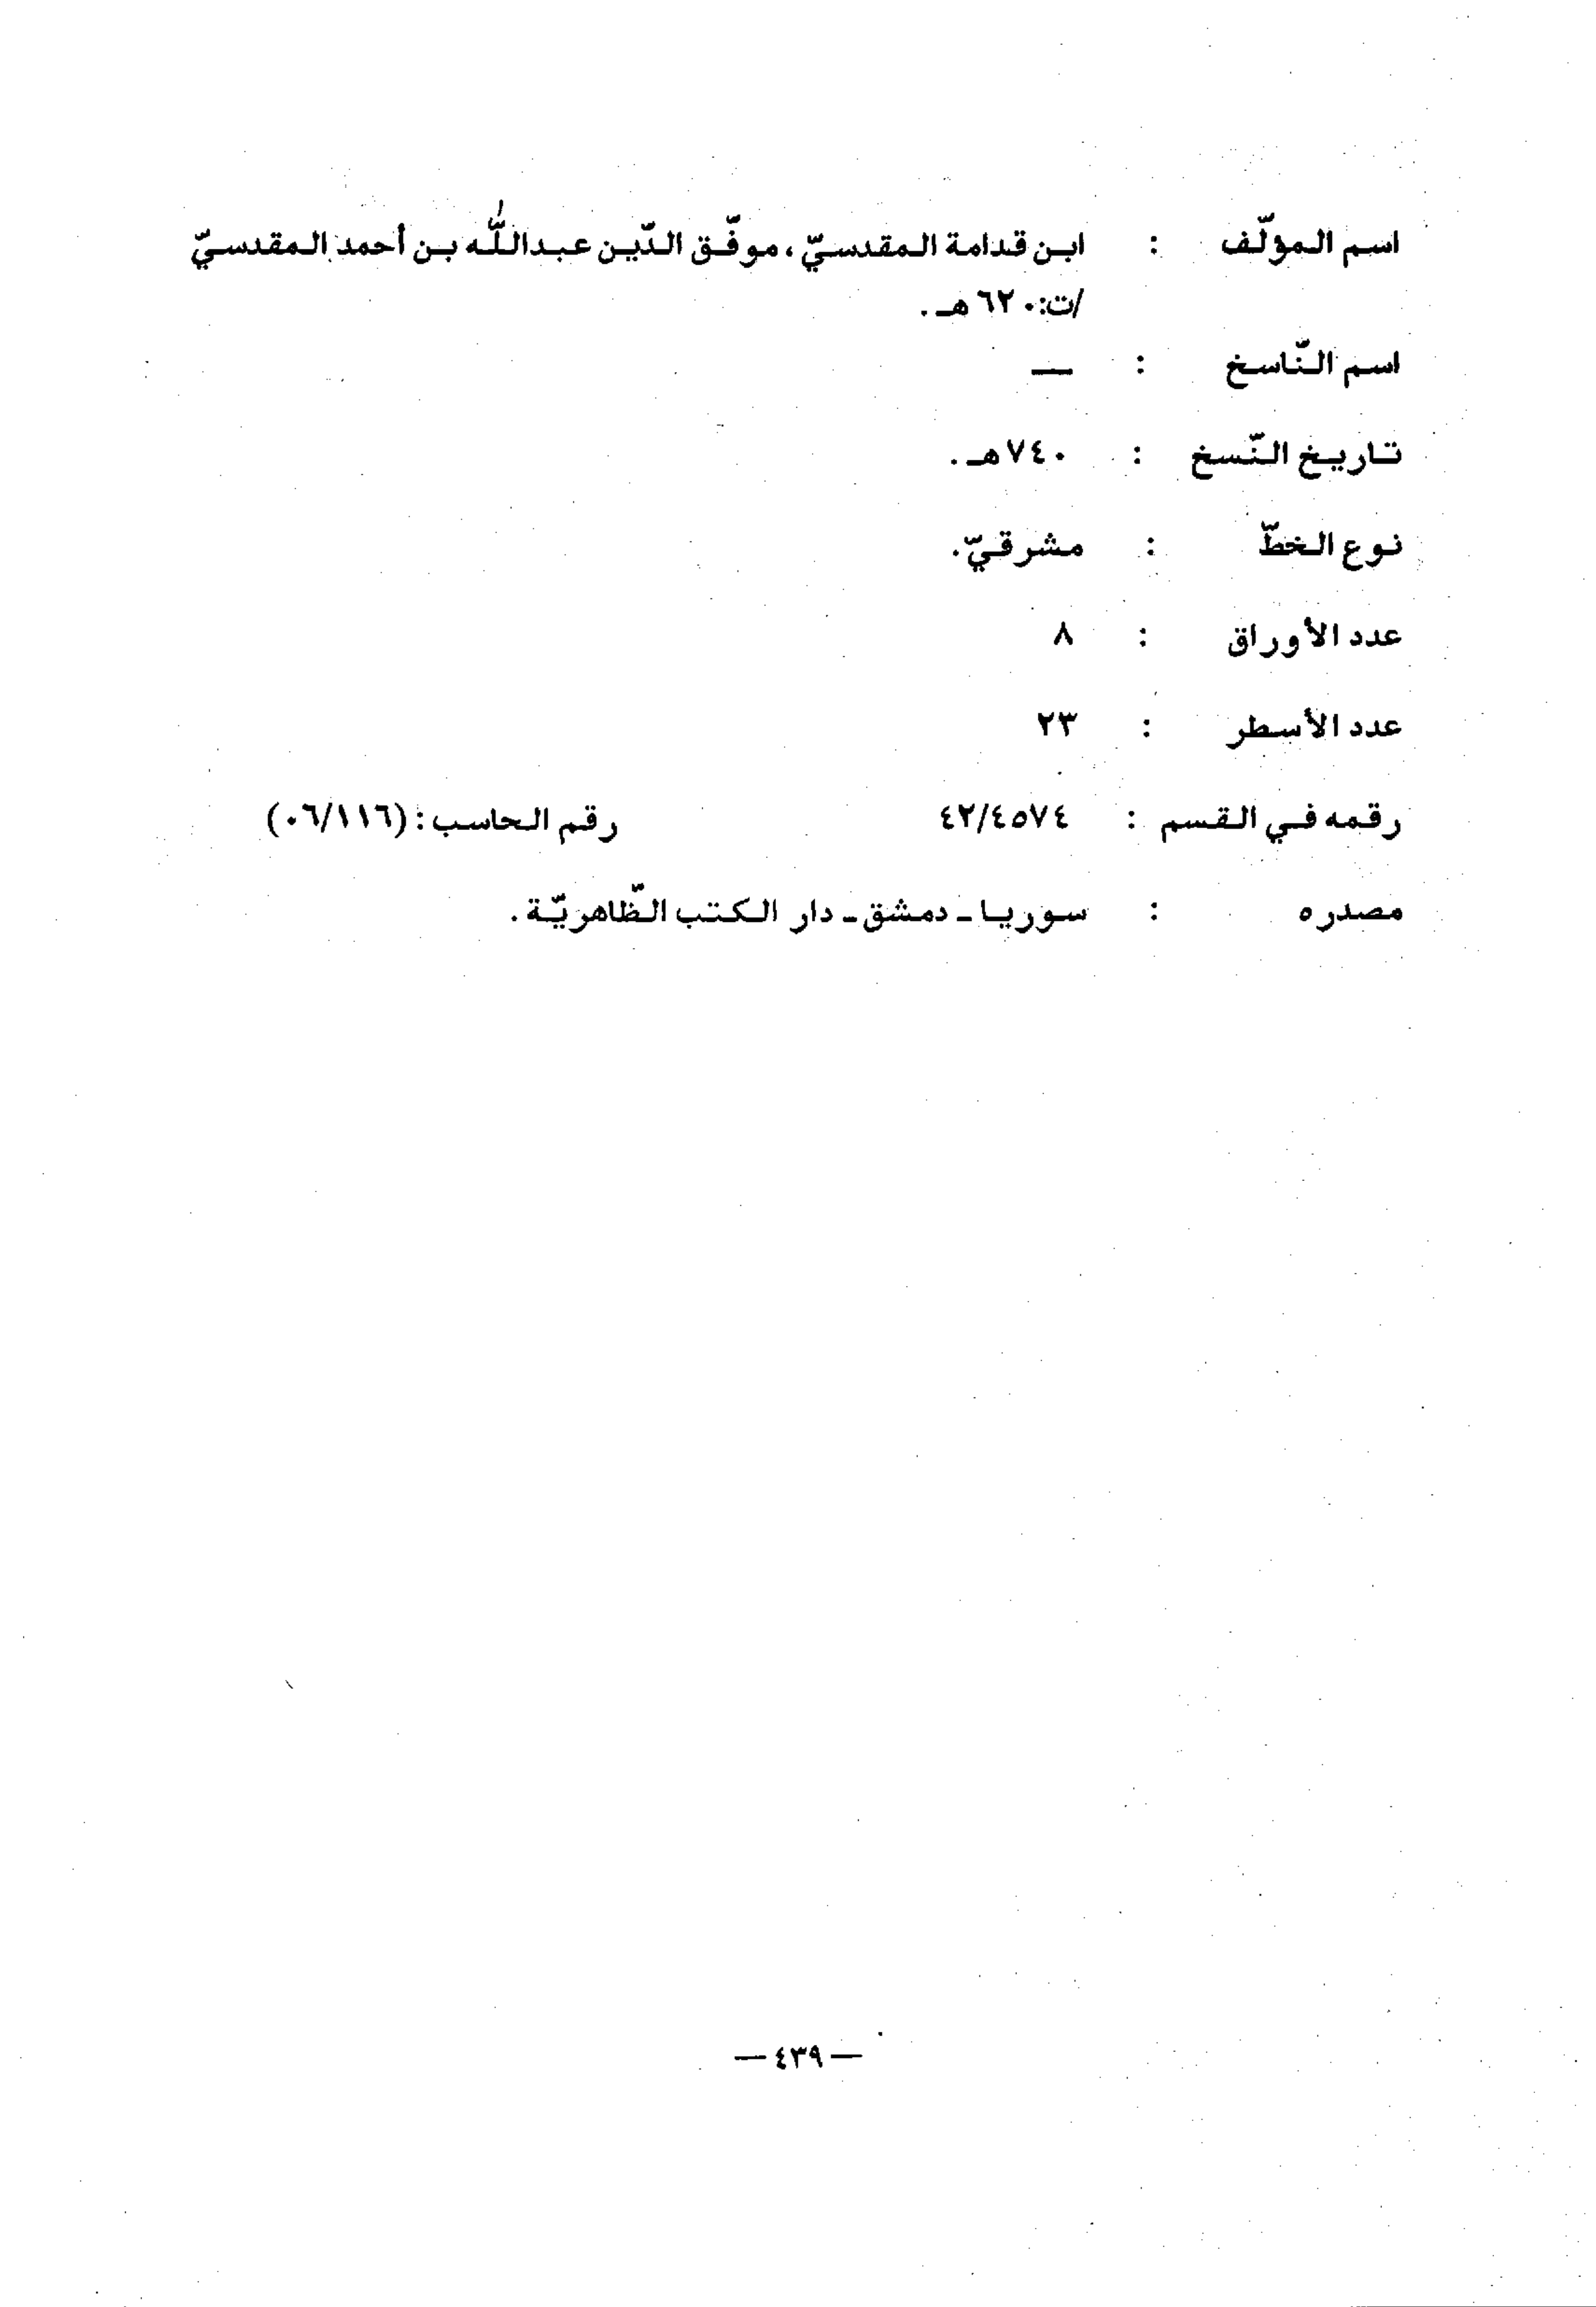 اسم المؤلّف : ابن قدامة المقدسيّ، موفّق الدّين عبدالله بن أحمد المقدسيّ
/ت:٦٢٠هـ.
اسم النّاسخ : —
تاريخ النّسخ : ٧٤٠هـ.
نوع الخطّ : مشرقيّ.
عدد الأوراق : ٨
عدد الأسطر : ٢٣
رقمه في القسم : ٤٢/٤٥٧٤ رقم الحاسب: (٠٦/١١٦)
مصدره : سوريا - دمشق - دار الكتب الظّاهريّة.
— ٤٣٩ —